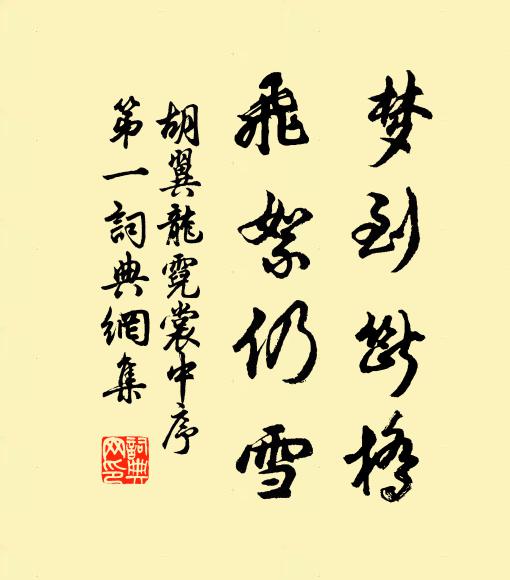 梦到断橋
飛絮仍雪
胡翼龍霓裳中序
第一詞典網集
詞典网印